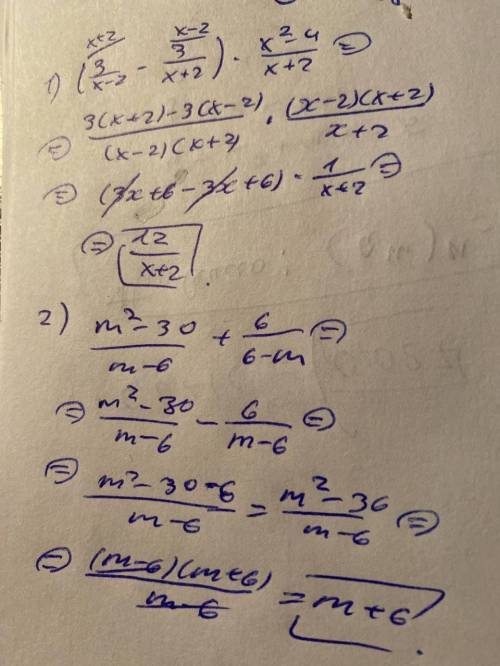 x+2 x-2
1) (3/(x-2) - 3/(x+2)) · (x²-4)/(x+2) =
= (3(x+2)-3(x-2))/((x-2)(x+2)) · ((x-2)(x+2))/(x+2)
= (3x+6-3x+6) · 1/(x+2) =
= 12/(x+2).
2) (m²-30)/(m-6) + 6/(6-m) =
= (m²-30)/(m-6) - 6/(m-6) =
= (m²-30-6)/(m-6) = (m²-36)/(m-6) =
= ((m-6)(m+6))/(m-6) = m+6.